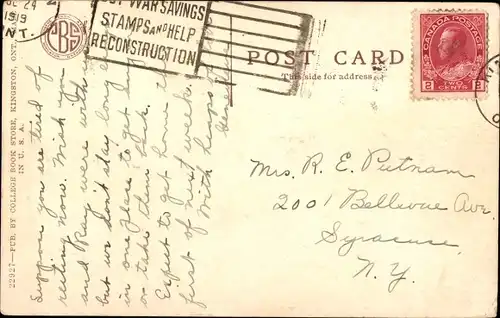 JUL 24
1919
ONT.
BUY WAR SAVINGS
STAMPS AND HELP
RECONSTRUCTION
PBS
POST CARD
This side for address.
CANADA POSTAGE
2 CENTS 2
22927—PUB. BY COLLEGE BOOK STORE, KINGSTON, ONT.
IN U. S. A.
Suppose you are tired of
resting now. Wish you
and Ray were with us
but we don't stay long
in one place to get
or take them back.
Expect to get home
first of next week.
With heaps of
Mrs. R. E. Putnam
2001 Bellevue Ave.
Syracuse
N.Y.